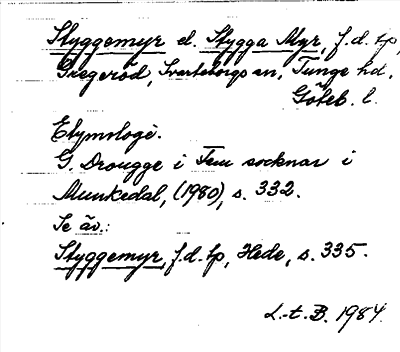 Styggemyr el. Stygga Myr, f.d. tp,
Gregeröd, Svarteborgs sn, Tunge hd.
Göteb. l.
Etymologi.
G. Drougge i Fem socknar i
Munkedal, (1980), s. 332.
Se äv.:
Styggemyr, f.d. tp, Hede, s. 335.
L.-t. B. 1984.